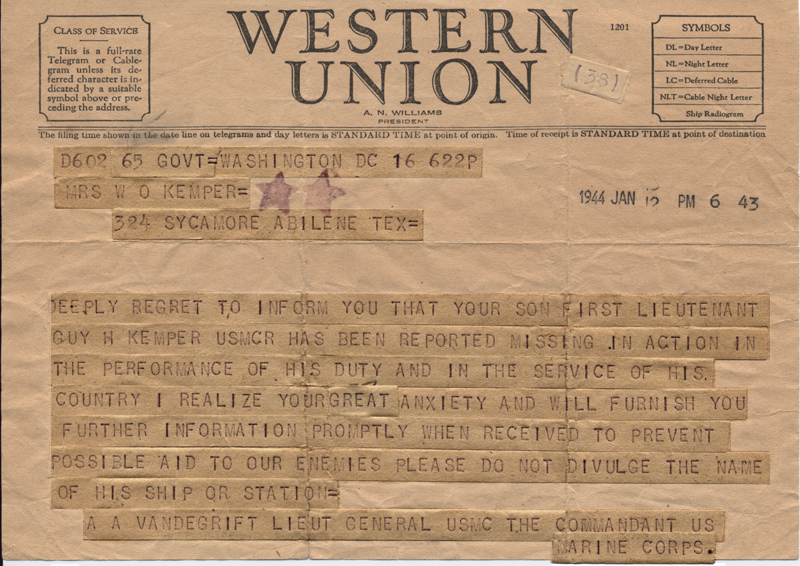 WESTERN
UNION
1201
(38)
A. N. WILLIAMS
PRESIDENT
CLASS OF SERVICE
This is a full-rate
Telegram or Cable-
gram unless its de-
ferred character is in-
dicated by a suitable
symbol above or pre-
ceding the address.
SYMBOLS
DL=Day Letter
NL=Night Letter
LC=Deferred Cable
NLT=Cable Night Letter
Ship Radiogram
The filing time shown in the date line on telegrams and day letters is STANDARD TIME at point of origin. Time of receipt is STANDARD TIME at point of destination
D602 65 GOVT=WASHINGTON DC 16 622P
MRS W O KEMPER=
1944 JAN PM 6 43
324 SYCAMORE ABILENE TEX=
DEEPLY REGRET TO INFORM YOU THAT YOUR SON FIRST LIEUTENANT
GUY H KEMPER USMCR HAS BEEN REPORTED MISSING IN ACTION IN
THE PERFORMANCE OF HIS DUTY AND IN THE SERVICE OF HIS
COUNTRY I REALIZE YOUR GREAT ANXIETY AND WILL FURNISH YOU
FURTHER INFORMATION PROMPTLY WHEN RECEIVED TO PREVENT
POSSIBLE AID TO OUR ENEMIES PLEASE DO NOT DIVULGE THE NAME
OF HIS SHIP OR STATION=
A A VANDEGRIFT LIEUT GENERAL USMC THE COMMANDANT US
MARINE CORPS.